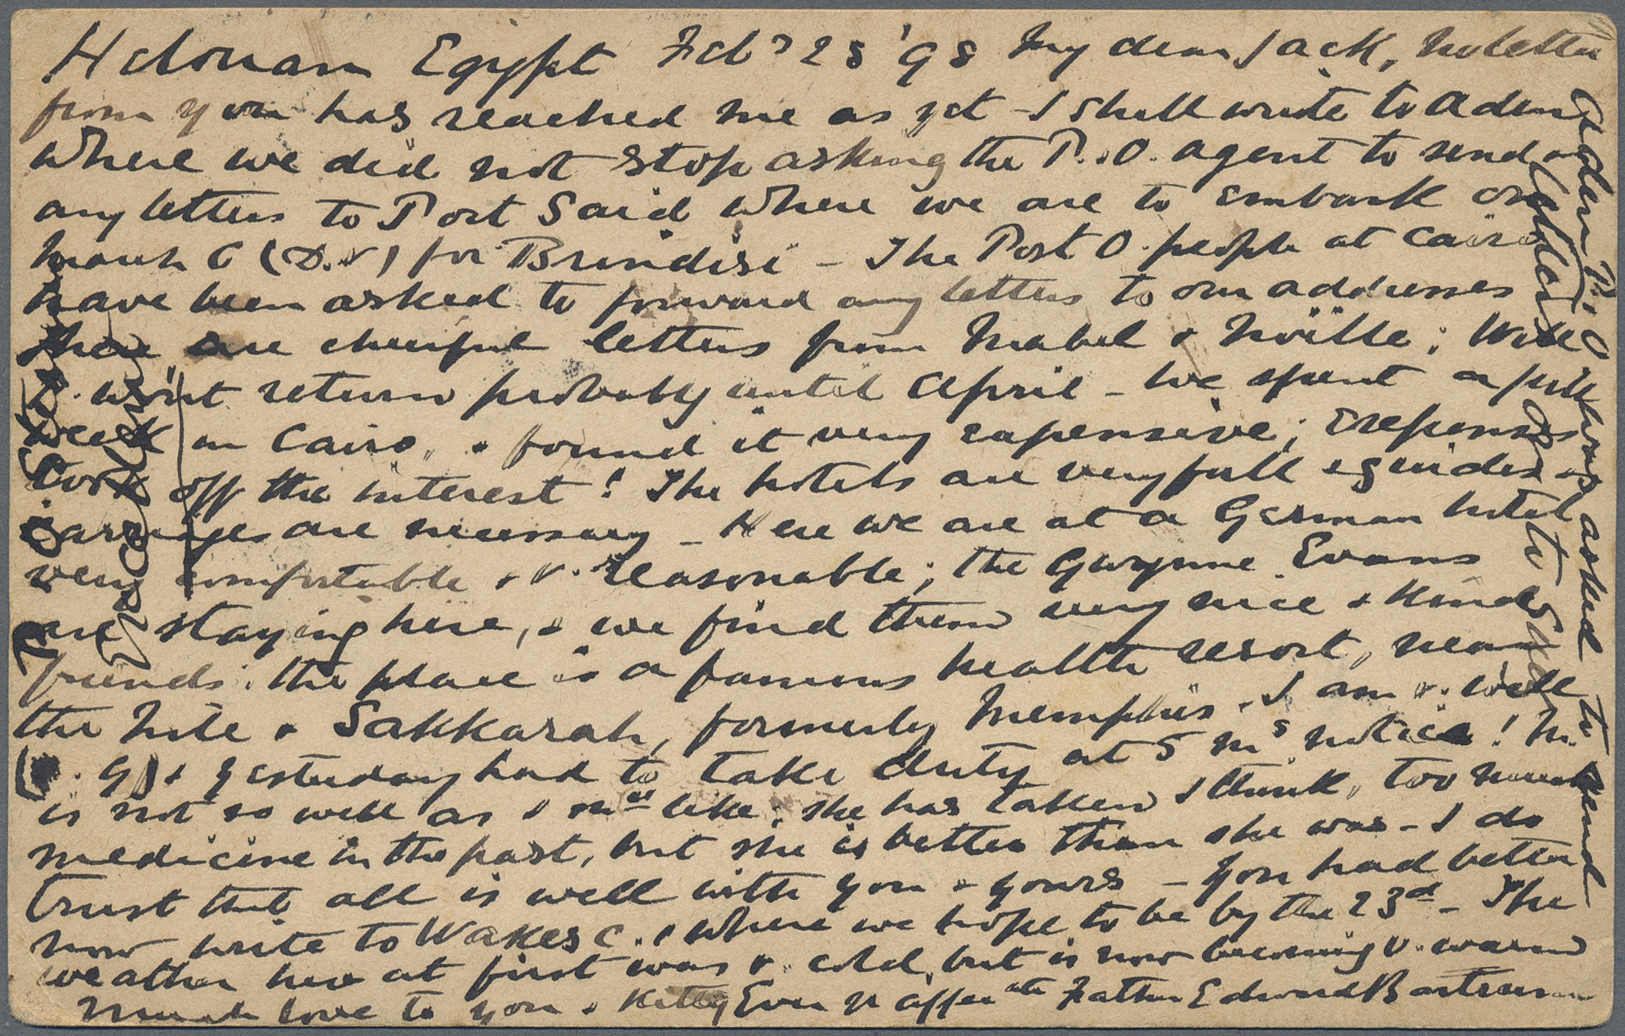 Helouan Egypt Feb 28 '98 My dear Jack, No letter
from you has reached me as yet - I shall write to Aden
where we did not stop asking the P.O. agent to send on
any letters to Port Said where we are to embark on
March 6 (D.V) for Brindisi - The Post O. people at Cairo
have been asked to forward any letters to our addresses
There are cheerful letters from Mabel & Noville; Will
won't return probably until April - We spent a full
week in Cairo, & found it very expensive;
Cook off the interest! The hotels are very full & guides &
carriages are necessary - Here we are at a German hotel
very comfortable & v. reasonable; the Gwynne Evans
are staying here, & we find them very nice & kind
friends. the place is a famous health resort, near
the Nile & Sakkarah, formerly Memphis. I am v. well
(D.G) & yesterday had to take duty at 5 ms notice! M.
is not so well as I like; she has taken I think, too much
medicine in the past, but she is better than she was - I do
trust that all is well with you & yours - You had better
now write to Wakes C. where we hope to be by the 23d - The
weather here at first was v. cold, but is now becoming v. warm
Much love to you & Kitty Ever yr affecate Father Edward
Aden P.O. was asked to send
letters on to